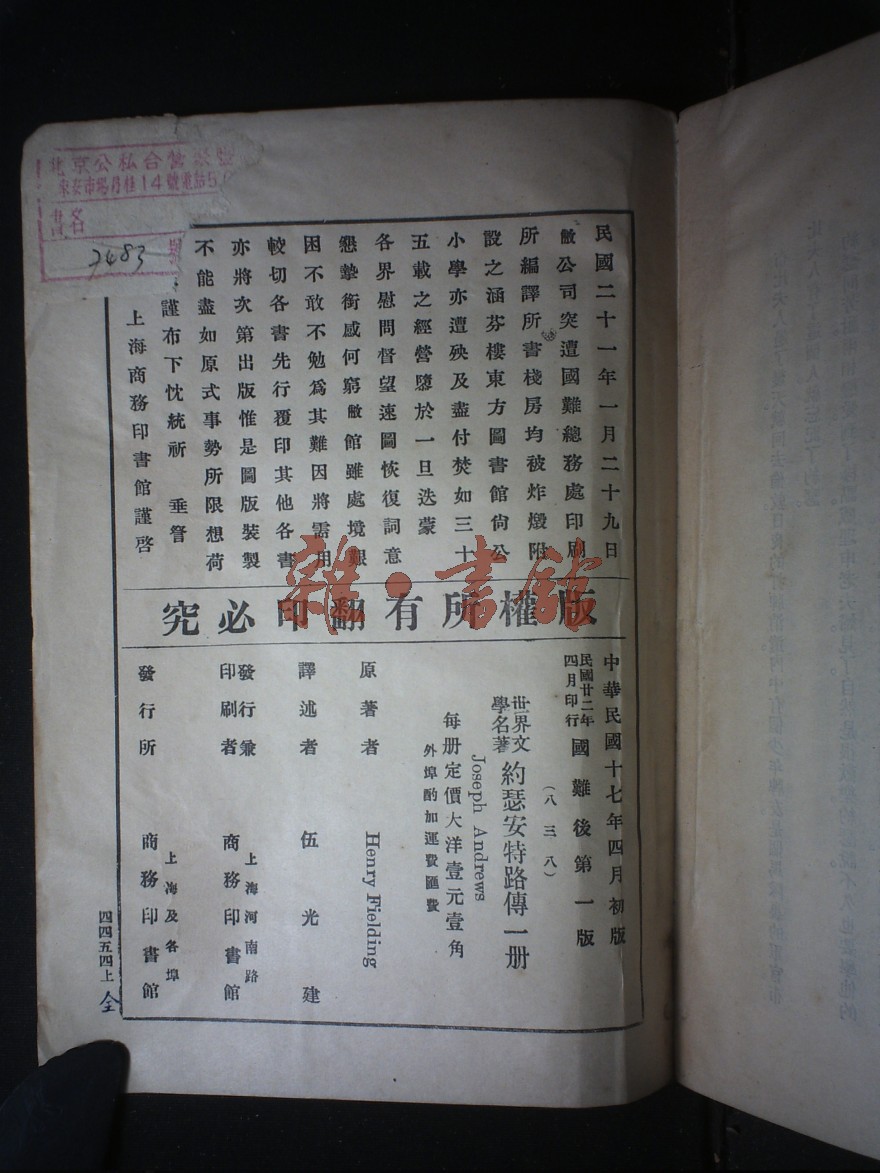 北京公私合營
東安市場丹桂14號電話5
書名
號
2483
民國二十一年一月二十九日
敝公司突遭國難總務處印刷
所編譯所書棧房均被炸燬附
設之涵芬樓東方圖書館尚公
小學亦遭殃及盡付焚如三十
五載之經營隳於一旦迭蒙
各界慰問督望速圖恢復詞意
懇摯銜感何窮敝館雖處境艱
困不敢不勉爲其難因將需用
較切各書先行覆印其他各書
亦將次第出版惟是圖版裝製
不能盡如原式事勢所限想荷
謹布下忱統祈 垂詧
上海商務印書館謹啓
雜·書館
版權所有翻印必究
中華民國十七年四月初版
民國廿二年四月印行 國難後第一版
(八三八)
世界文學名著 約瑟安特路傳一册
Joseph Andrews
每册定價大洋壹元壹角
外埠酌加運費匯費
原著者 Henry Fielding
譯述者 伍光建
發行兼印刷者 上海河南路 商務印書館
發行所 上海及各埠 商務印書館
四四五四上
全